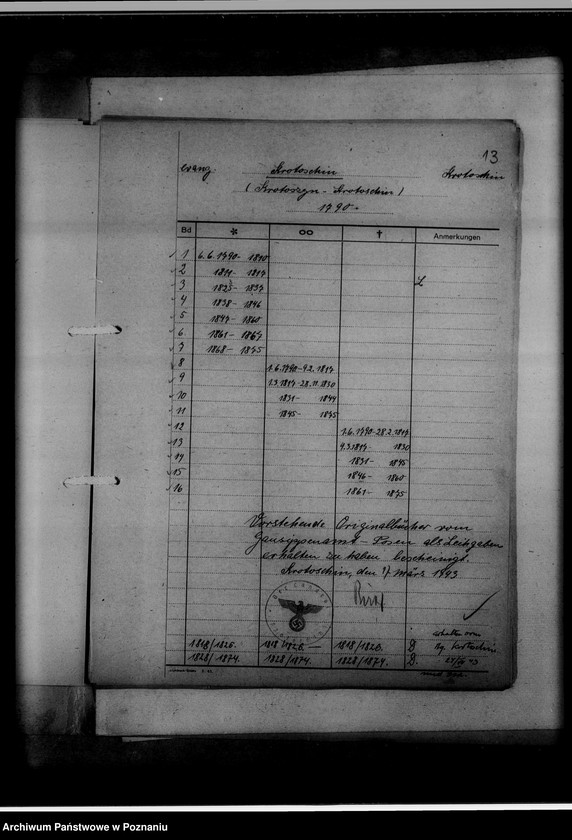 13
evang. Krotoschin Krotoschin
(Krotoszyn - Krotoschin)
1790-
Bd * ∞ † Anmerkungen
1 6.6.1790- 1810
2 1811- 1817
3 1825- 1837 L
4 1838- 1846
5 1847- 1860
6 1861- 1867
7 1868- 1875
8 1.6.1790-9.2.1817
9 1.3.1817-28.11.1830
10 1831- 1844
11 1845- 1875
12 1.6.1790-28.2.1817
13 9.3.1817- 1830
14 1831- 1845
15 1846- 1860
16 1861- 1875
Vorstehende Originalbücher vom
Gausippenamt - Posen als Leihgaben
erhalten zu haben bescheinigt.
Krotoschin, den März 1943
1818/1826. 1818/1826.- 1818/1826. D erhalten vom
1828/1874. 1828/1874. 1828/1874. D. Krotoschin
Archiwum Państwowe w Poznaniu